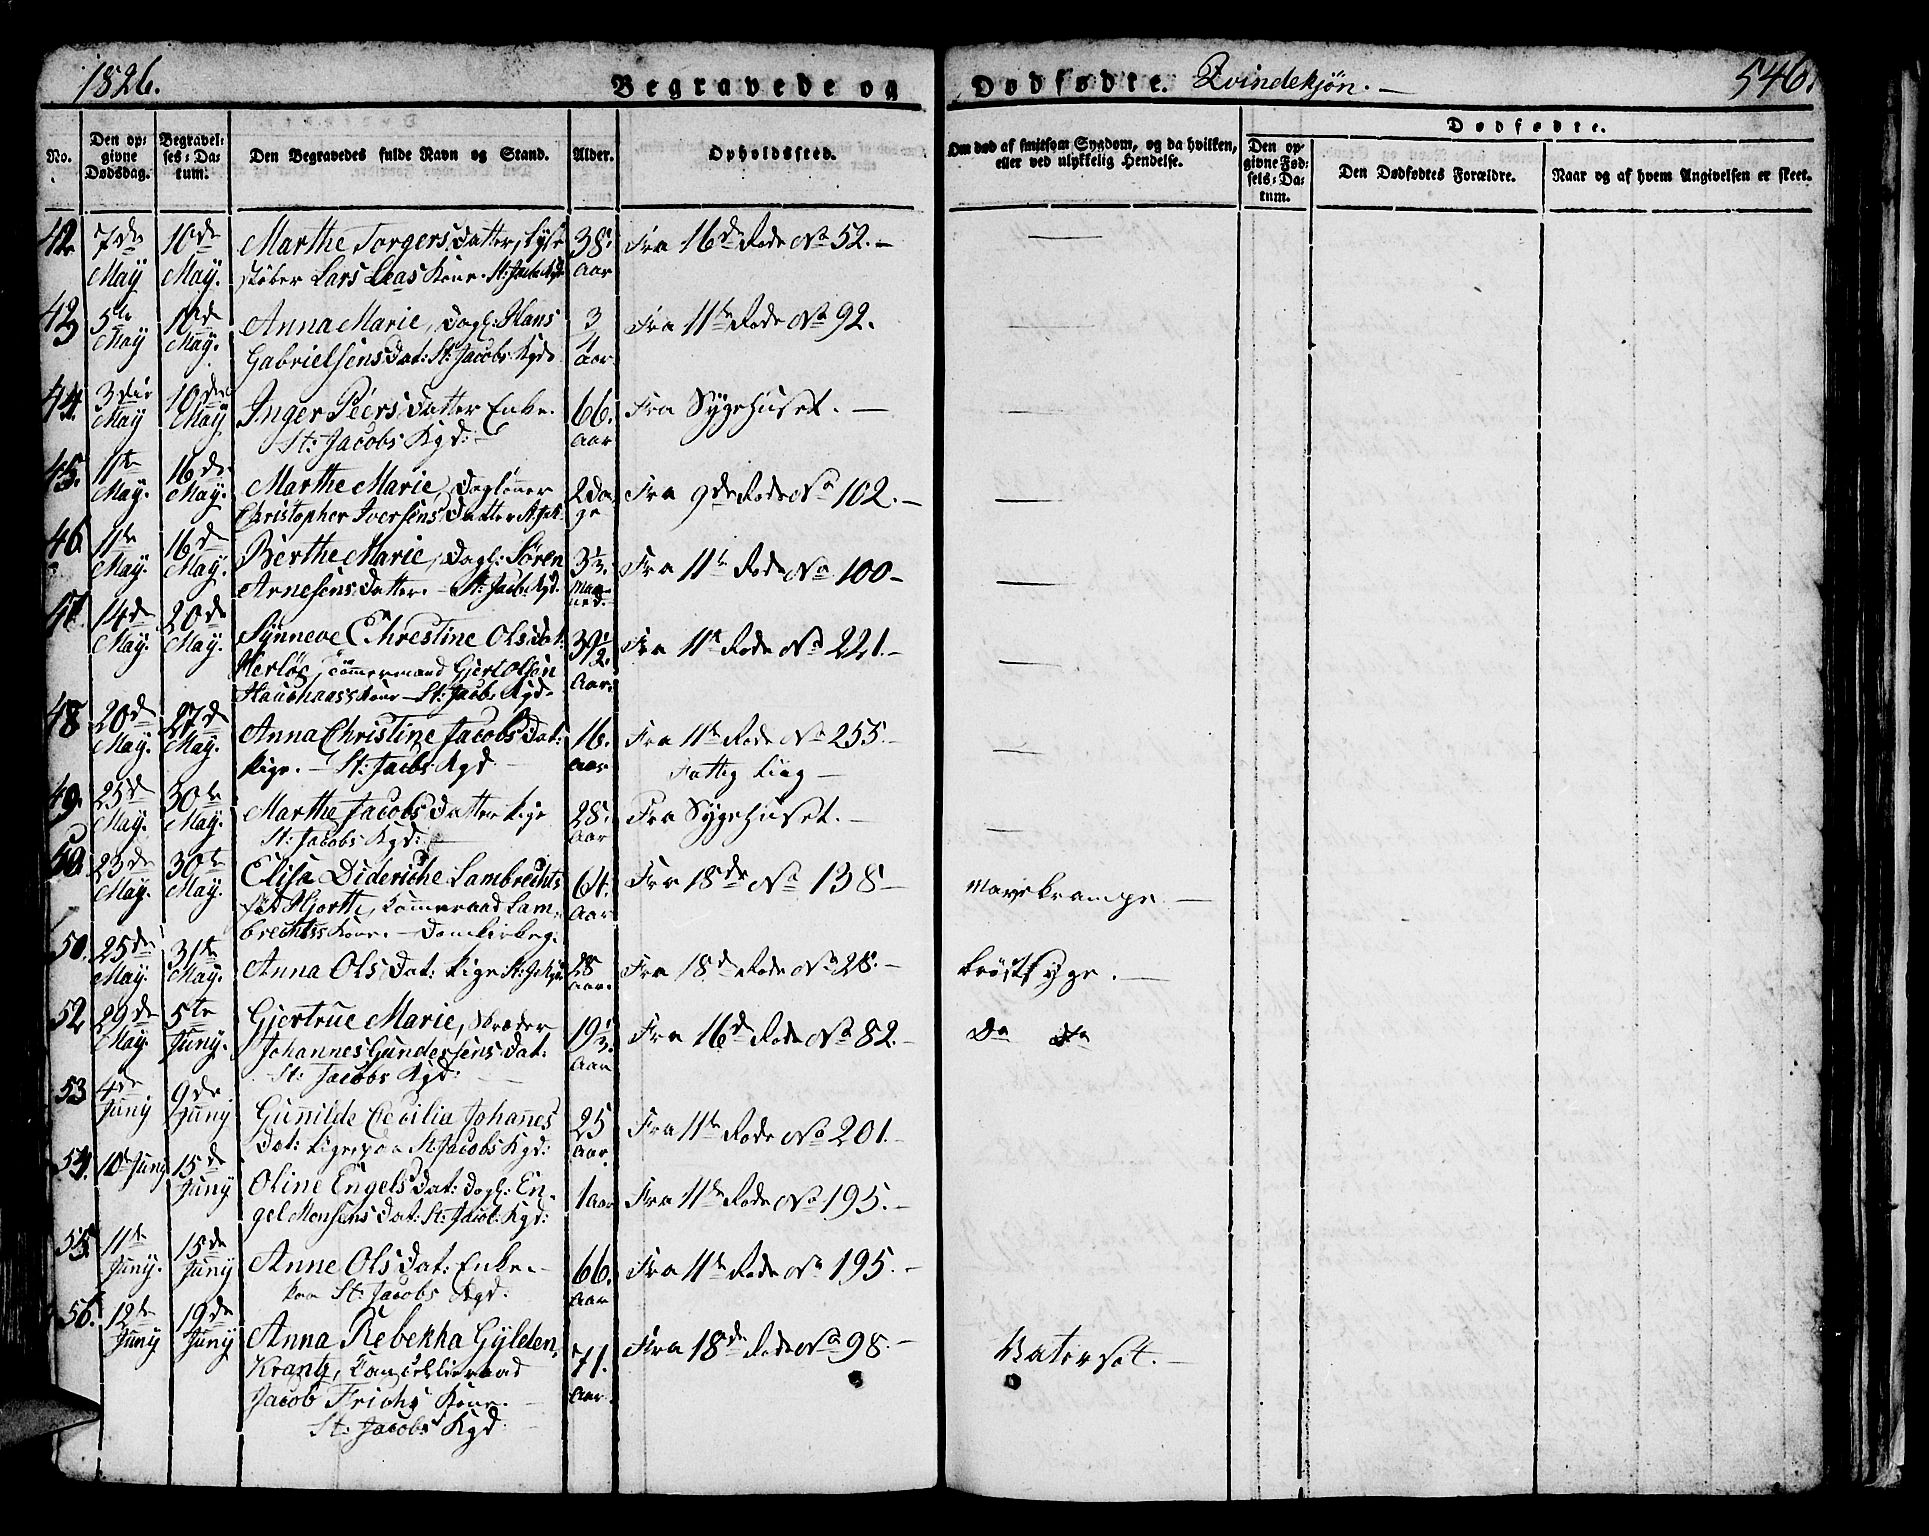 1826.
Begravede og Dødfødte. Qvindekjøn. —
546.
No.
Den op-
givne
Dødsdag.
Begravel-
ses-Da-
tum.
Den Begravedes fulde Navn og Stand.
Alder.
Opholdssted.
Om død af smitsom Sygdom, og da hvilken,
eller ved ulykkelig Hendelse.
Dødfødte.
Den op-
givne Fød-
sels-Da-
tum.
Den Dødfødtes Forældre.
Naar og af hvem Angivelsen er skeet.
42. 7de May 10de May. Marthe Torgers Datter, Lyse
støber Lars Leas Kone. St: Jacobs Kgd 38. Aar Fra 16de Rode No 52. —
43 5te May 10de May. Anna Marie, Dagl: Hans
Gabrielsens Dat: St: Jacobs Kgd. 3/4 Aar Fra 11te Rode No 92.
44. 3die May 10de May Inger Peers Datter Enke.
St: Jacobs Kgd: — 66. Aar Fra Sygehuset. —
45. 11te May. 16de May. Marthe Marie, Dagleiner
Christopher Iversens Datter St. Jak. 2 Da-
ge Fra 9de Rode No 102. —
46. 11te May. 16de May. Berthe Marie, Dagl: Søren
Arnesens Datter. — St: Jacobs Kgd. 3 1/2. Maa-
ned. Fra 11te Rode No 100 —
47. 14de May. 20de May. Synneve Chrestine Ols Dat:
Herløe, Tømmermand Gjert Olsen
Haughaass Kone — St: Jacobs Kgd. 39 1/2. Aar. Fra 11te Rode No 221. —
48 20de May. 27de May. Anna Christine Jacobs Dat:
Pige. — St: Jacobs Kgd — 16. Aar Fra 11te Rode No 255. —
Fattig Liig —
49. 25de May. 30te May. Marthe Jacobs Datter Pige
St: Jacobs Kgd: 28. Aar Fra Sygehuset. —
50. 23de May. 30te May. Elisa Dideriche Lambrechts
fød Hjorth, Kammeraad Lam-
brechtss Kone. — Domkirkeg. 64. Aar Fra 18de No 138 — Mavekrampe. —
50. 25de May. 31te May. Anna Ols Dat: Pige St: Jakobs 28 Aar. Fra 18de Rode No 28. — Brøstsyge. —
52. 29de May. 5te Juny. Gjertrue Marie, Skræder
Johannes Gundersens Dat:
St: Jacobs Kgd: — 19 1/3. Aar Fra 16de Rode No 82. — Do Do
53 4de Juny 9de Juny Gunnilde Cecilia Johannes
Dat: Pige, paa St: Jacobs Kgd: 25 Aar. Fra 11te Rode No 201. —
54. 10de Juny 15de Juny Oline Engels Dat: Dagl: En-
gel Monsens Dat: St: Jacob: Kgd: 1 Aar Fra 11te Rode No 195. —
55. 11te Juny. 15de Juny Anne Ols Dat: Enke. —
paa St: Jacobs Kgd. 66. Aar Fra 11te Rode No 195. —
56. 12te Juny 19de Juny Anna Rebekka Gylden-
Krantz, Cancellieraad
Jacob Frichs Kone. —
St: Jacobs Kgd 71. Aar. Fra 18de Rode No 98. — Vatersot. —